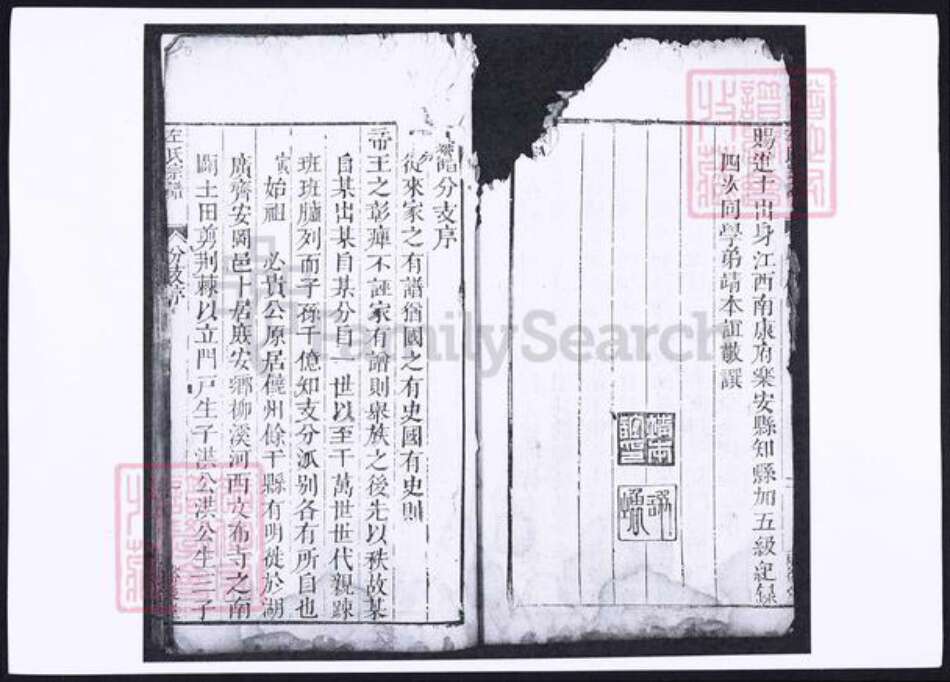 賜進士出身江西南康府樂安縣知縣加五級紀錄
四次同學弟靖本誼敬譔
譜分支序
從來家之有譜猶國之有史國有史則
帝王之彰癉不誣家有譜則衆族之後先以秩故某
自某出某自某分自一世以至千萬世世代親踈
班班臚列而子孫千億知支分派别各有所自也
始祖 必貴公原居饒州餘干縣有明徙於湖
廣齊安岡邑卜居庶安鄉柳溪河西文布寺之南
闢土田剪荆棘以立門戸生子洪公洪公生三子
左氏宗譜
分支序
FamilySearch